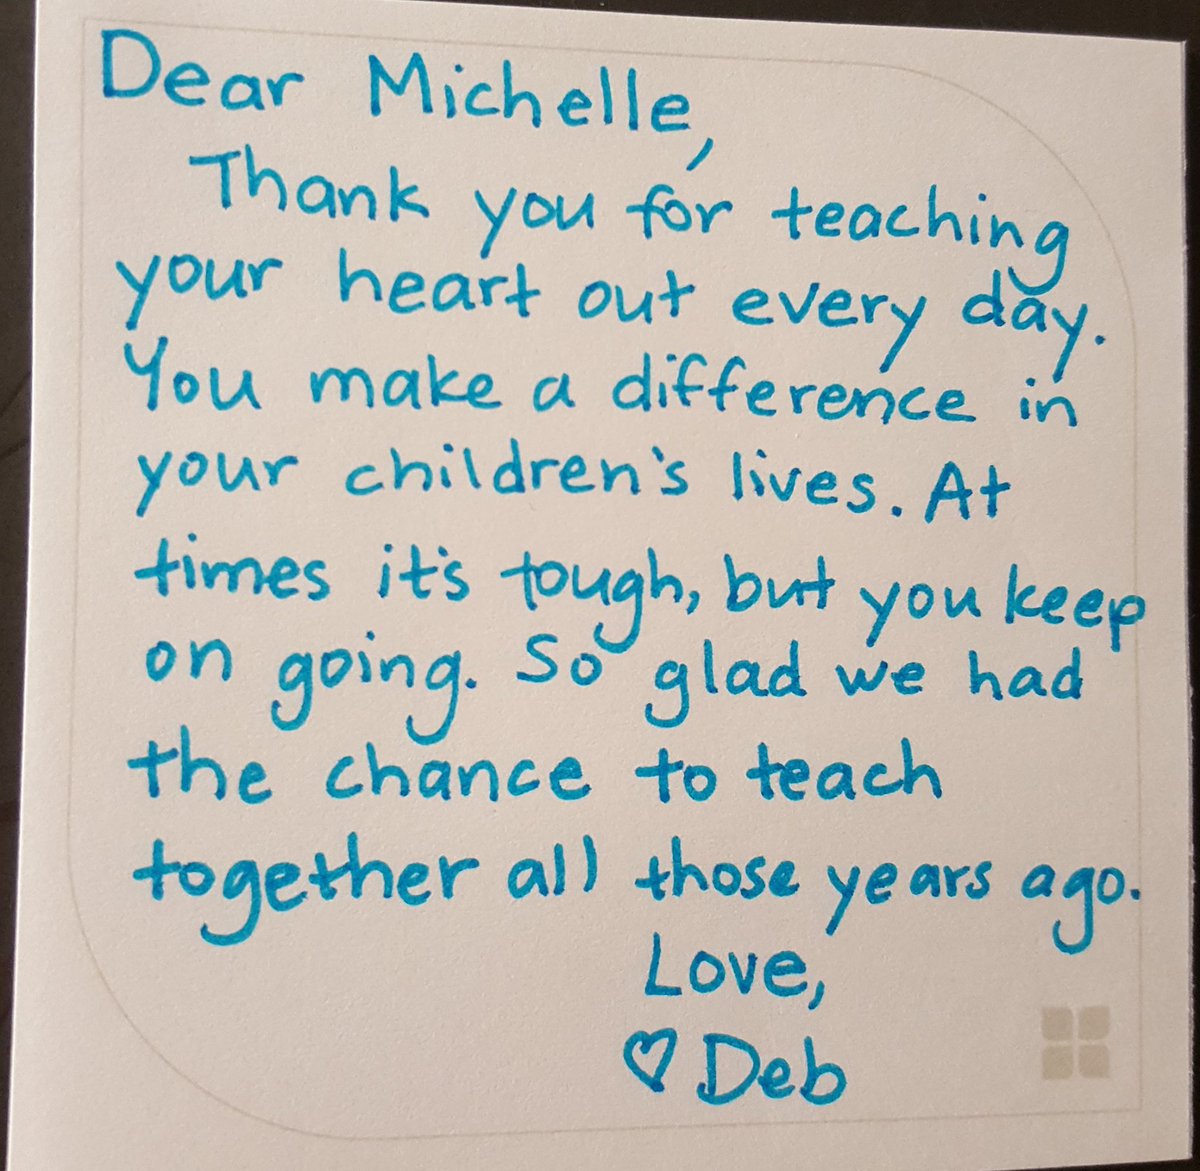 Dear Michelle,
Thank you for teaching
your heart out every day.
You make a difference in
your children's lives. At
times it's tough, but you keep
on going. So glad we had
the chance to teach
together all those years ago.
Love,
♡ Deb